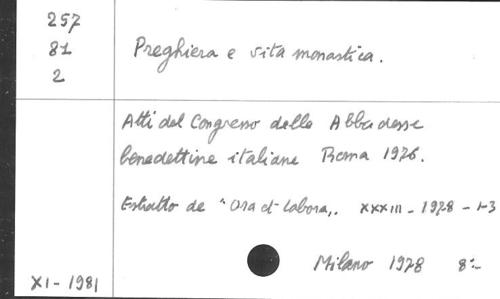 257
81
2
Preghiera e vita monastica.
Atti del Congresso delle Abbadesse
benedettine italiane Roma 1976.
Estratto da "Ora et Labora,. XXXIII - 1978 - 1-3
Milano 1978 8:-
XI - 1981